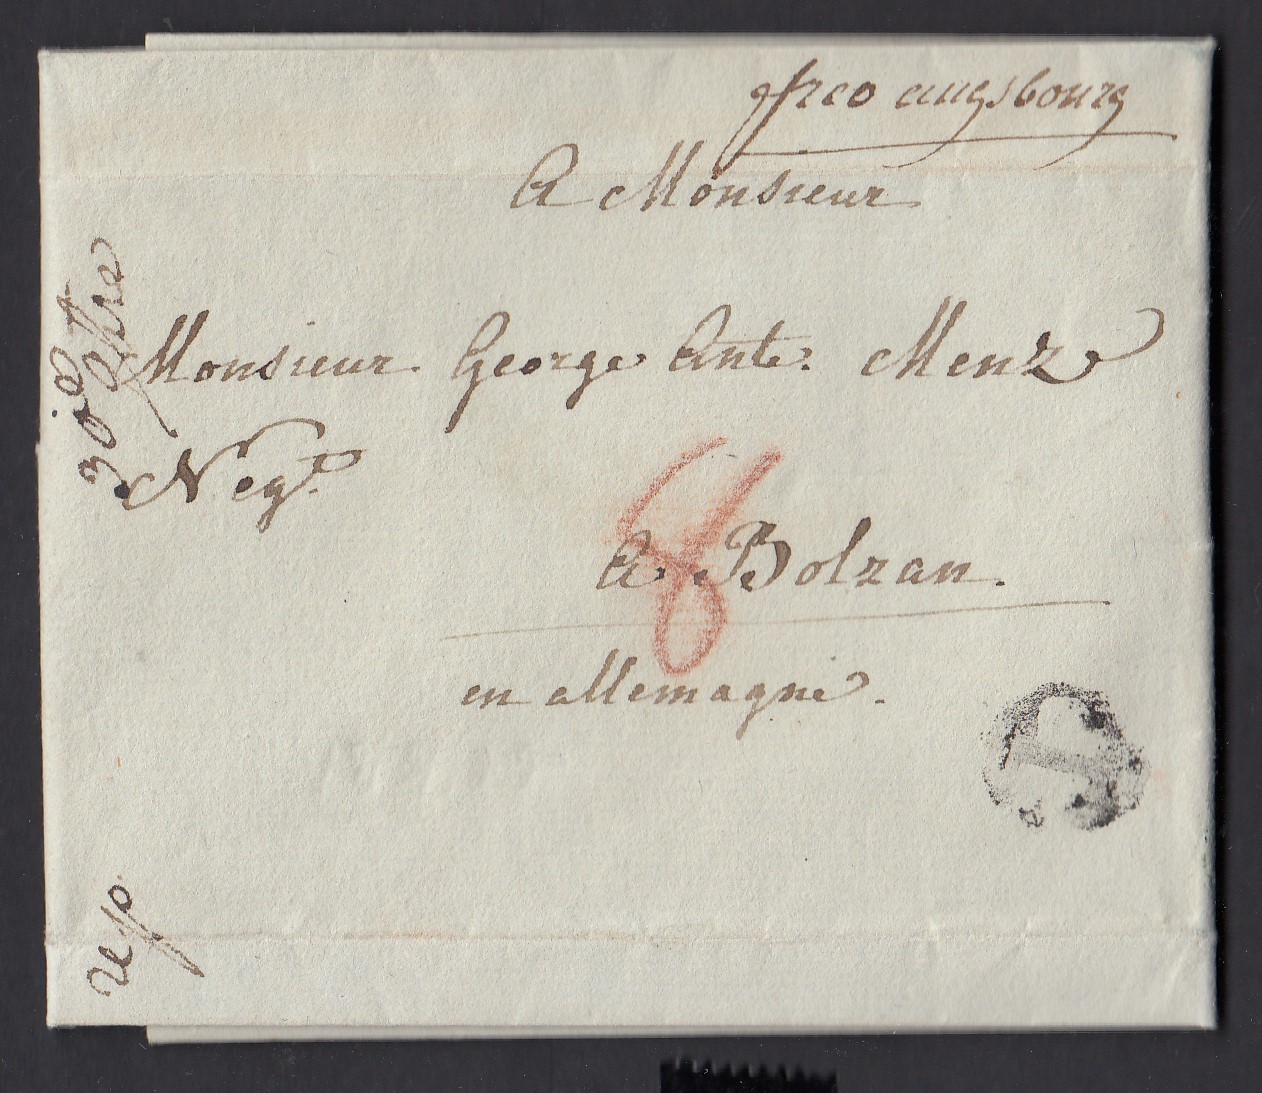 fco augsbourg
A Monsieur
Monsieur George Ante: Menz
Negt.
A Bolzan.
en allemagne.
8